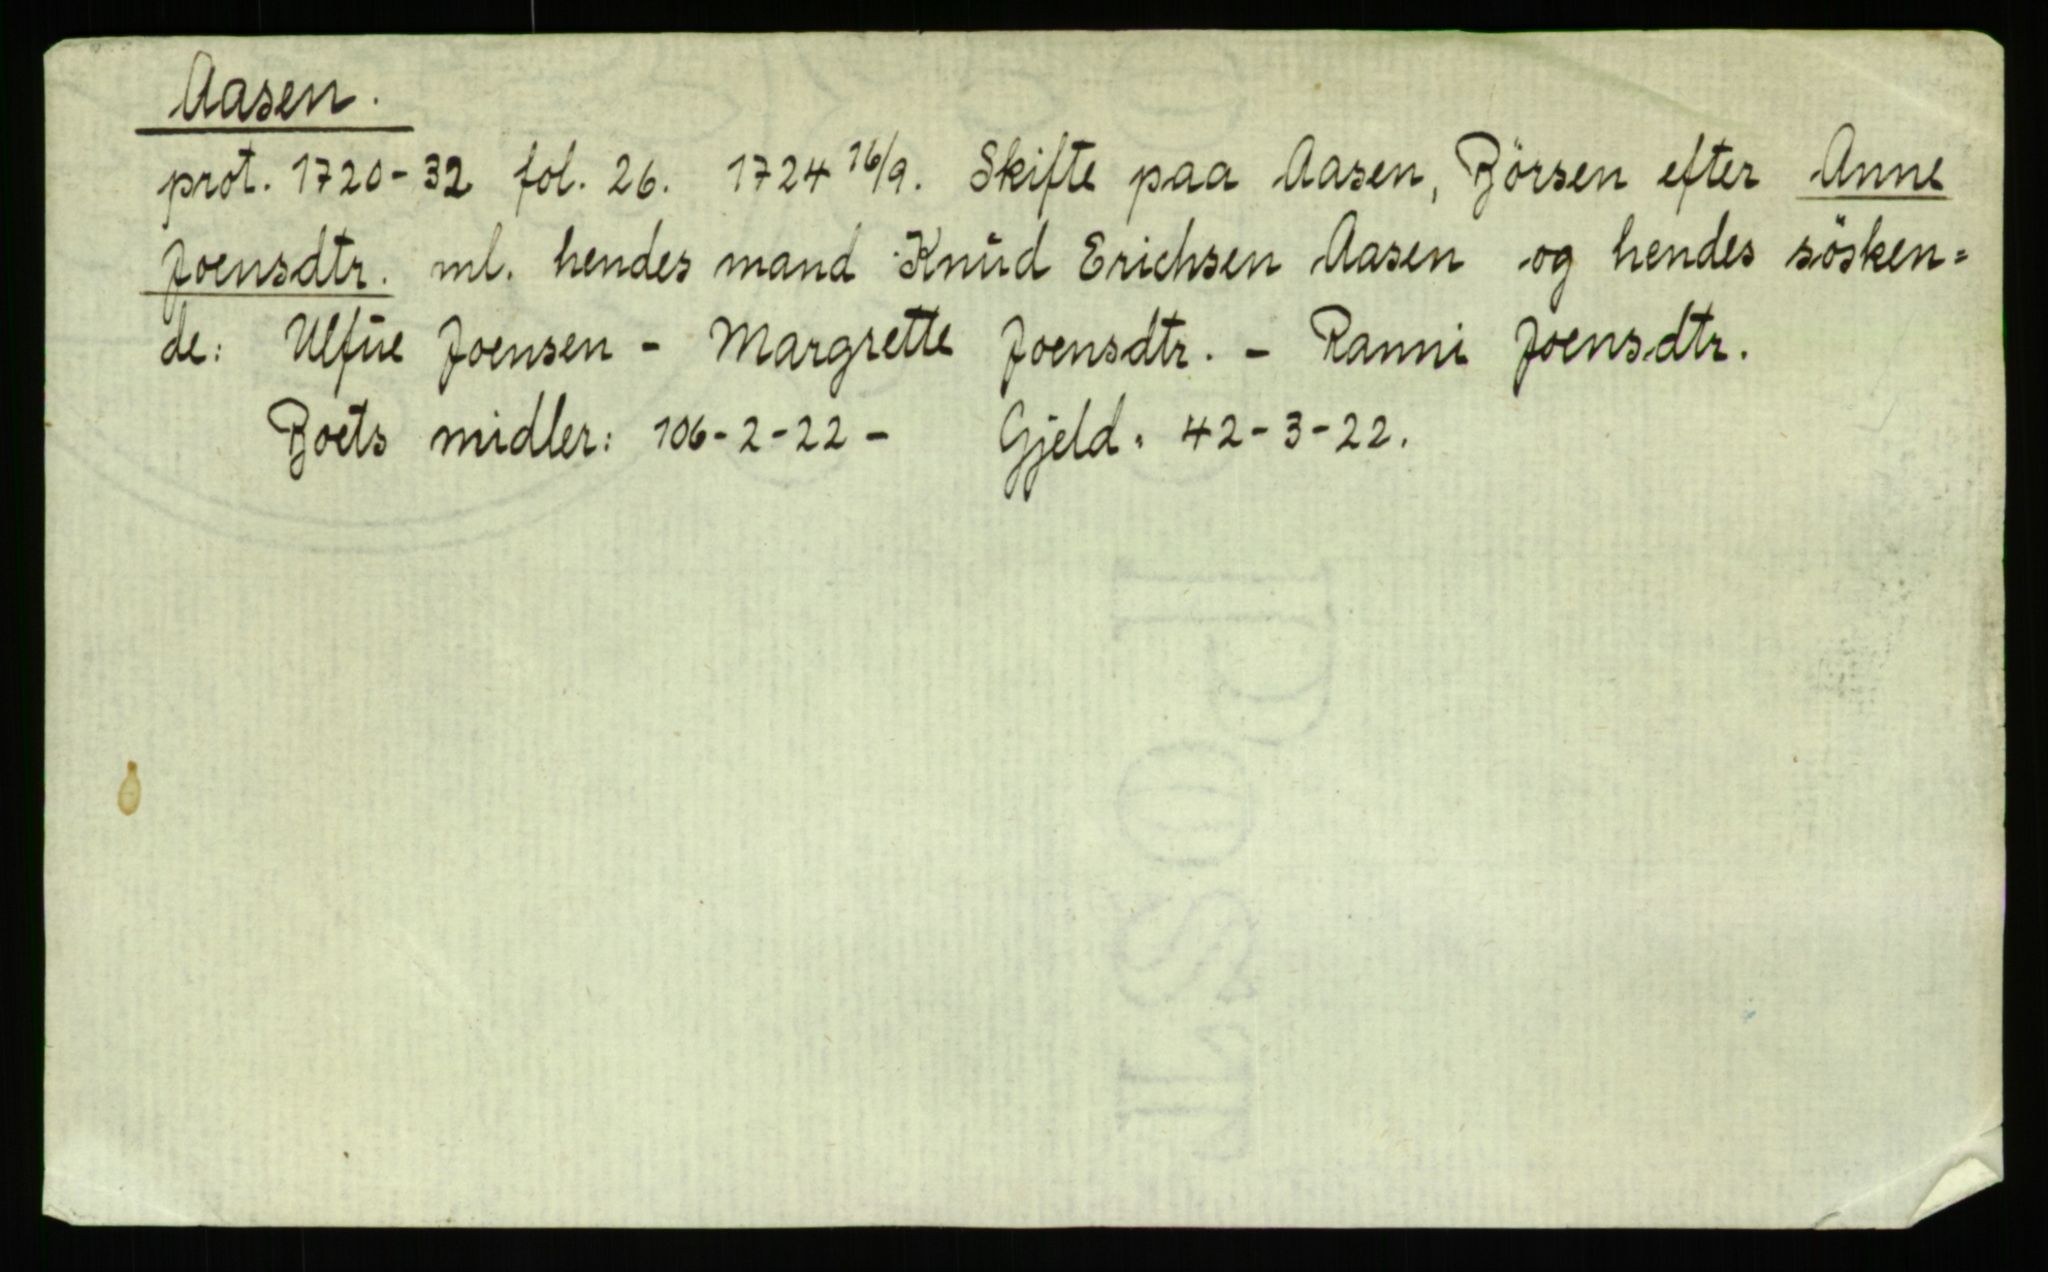 Aasen.
prot. 1720-32 fol. 26. 1724 16/9. Skifte paa Aasen, Börsen efter Anne
Joensdtr. ml. hendes mand Knud Erichsen Aasen og hendes sösken=
de: Ulfue Joensen - Margrette Joensdtr. - Ranni Joensdtr.
Boets midler: 106-2-22- Gjeld. 42-3-22.
POST